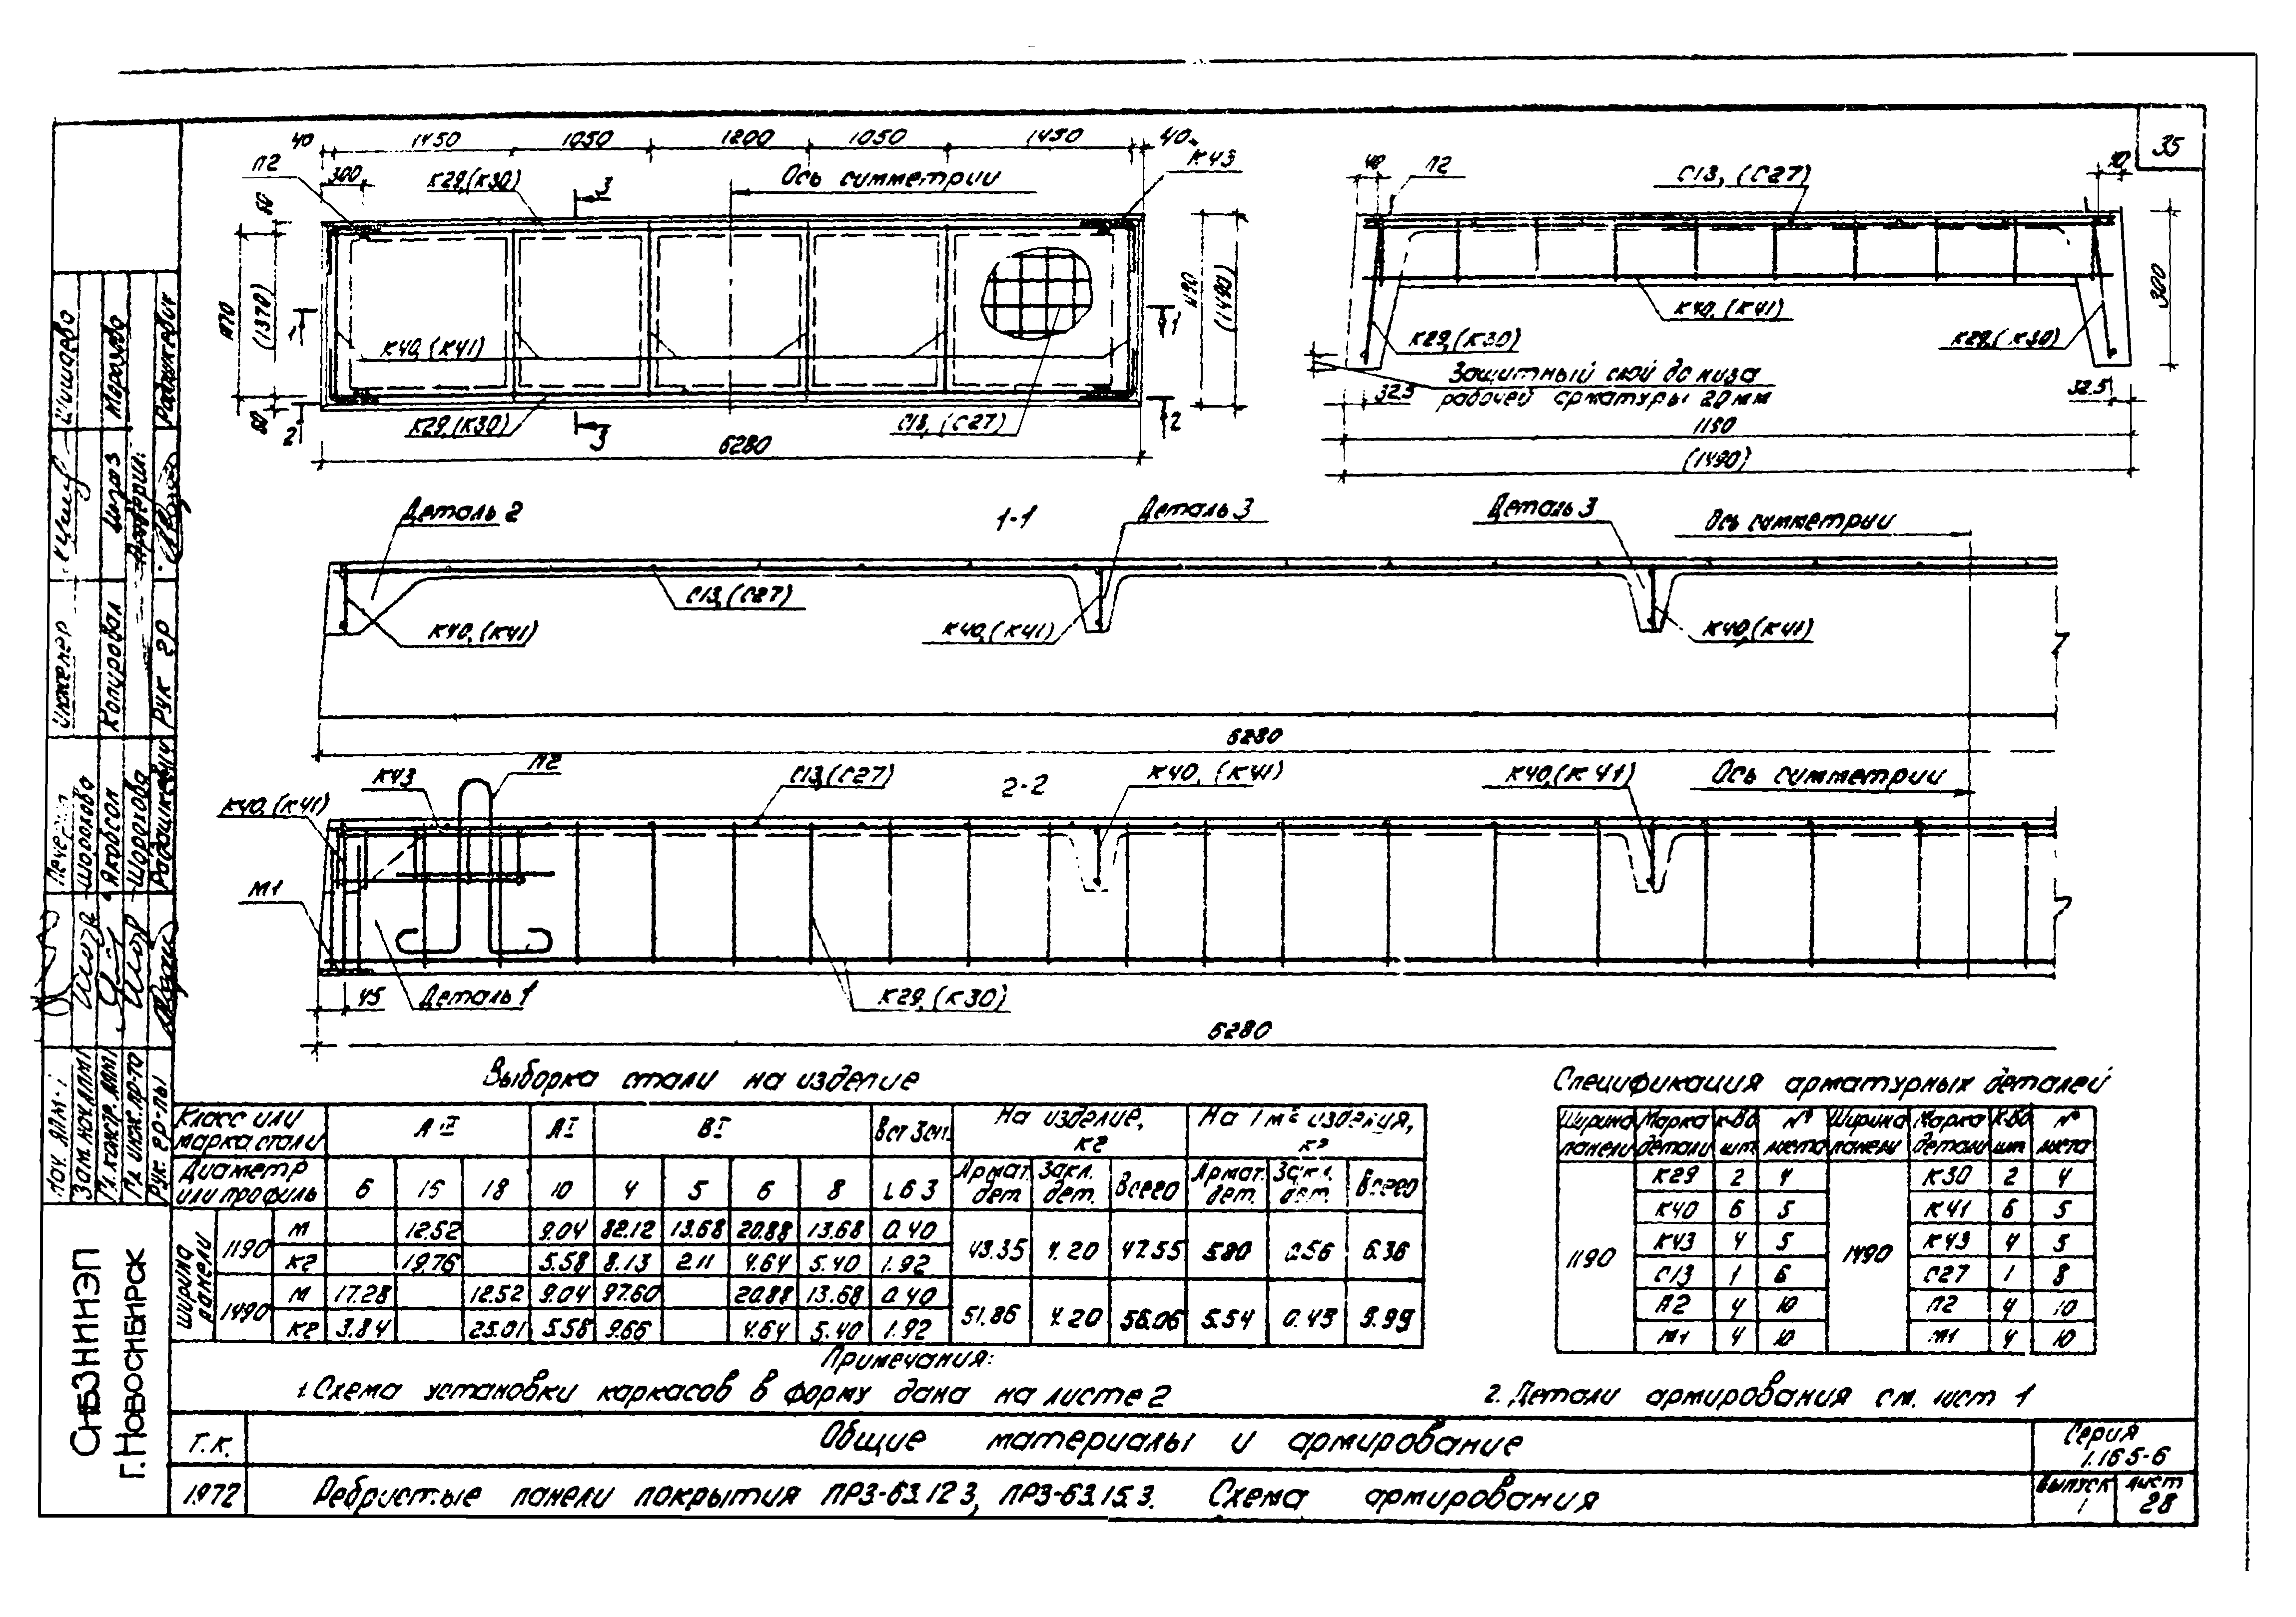 35
40 1450 1050 1200 1050 1450 40
П2 300 К29,(К30) 3 Ось симметрии К43
60 1070 (1370) 60
1 К40,(К41) 1
1190 (1490)
2 К29,(К30) 3 С13,(С27) 2
6280
40 П2 С13,(С27) 40
300
К40,(К41)
К29,(К30) К29,(К30)
Защитный слой до низа
рабочей арматуры 20мм
32.5 32.5
1190
(1490)
Деталь 2 1-1 Деталь 3 Деталь 3 Ось симметрии
С13,(С27)
К40,(К41) К40,(К41) К40,(К41)
6280
К43 П2 С13,(С27) 2-2 К40,(К41) К40,(К41) Ось симметрии
К40,(К41)
М1
45 Деталь 1 К29,(К30)
6280
Выборка стали на изделие
Класс или марка стали АIII АI ВI Вст 3сп. На изделие, кг На 1 м² изделия, кг
Диаметр или профиль 6 16 18 10 4 5 6 8 L63 Армат. дет. Закл. дет. Всего Армат. дет. Закл. дет. Всего
Ширина панели
1190 М 12.52 9.04 82.12 13.68 20.88 13.68 0.40 43.35 4.20 47.55 5.80 0.56 6.36
кг 19.76 5.58 8.13 2.11 4.64 5.40 1.92
1490 М 17.28 12.52 9.04 97.60 20.88 13.68 0.40 51.86 4.20 56.06 5.54 0.45 5.99
кг 3.84 25.01 5.58 9.66 4.64 5.40 1.92
Спецификация арматурных деталей
Ширина панели Марка детали к-во шт. № листа Ширина панели Марка детали к-во шт. № листа
1190 К29 2 4 1490 К30 2 4
К40 6 5 К41 6 5
К43 4 5 К43 4 5
С13 1 6 С27 1 8
П2 4 10 П2 4 10
М1 4 10 М1 4 10
Примечания:
1. Схема установки каркасов в форму дана на листе 2
2. Детали армирования см. лист 1
Т.К. Общие материалы и армирование Серия 1.165-6
1972 Ребристые панели покрытия ПРЗ-63.12 3, ПРЗ-63.15.3. Схема армирования Выпуск 1 лист 28
СибЗНИИЭП
г. Новосибирск
Нач. АПМ-1 Инженер Шишарева
Зам. нач. АПМ1 Шорохова Копировал Морозова
Гл. констр. АПМ1 Якобсон
Гл. инж. пр-та Шорохова
Рук. гр-пы Радашкевич Рук гр Радашкевич